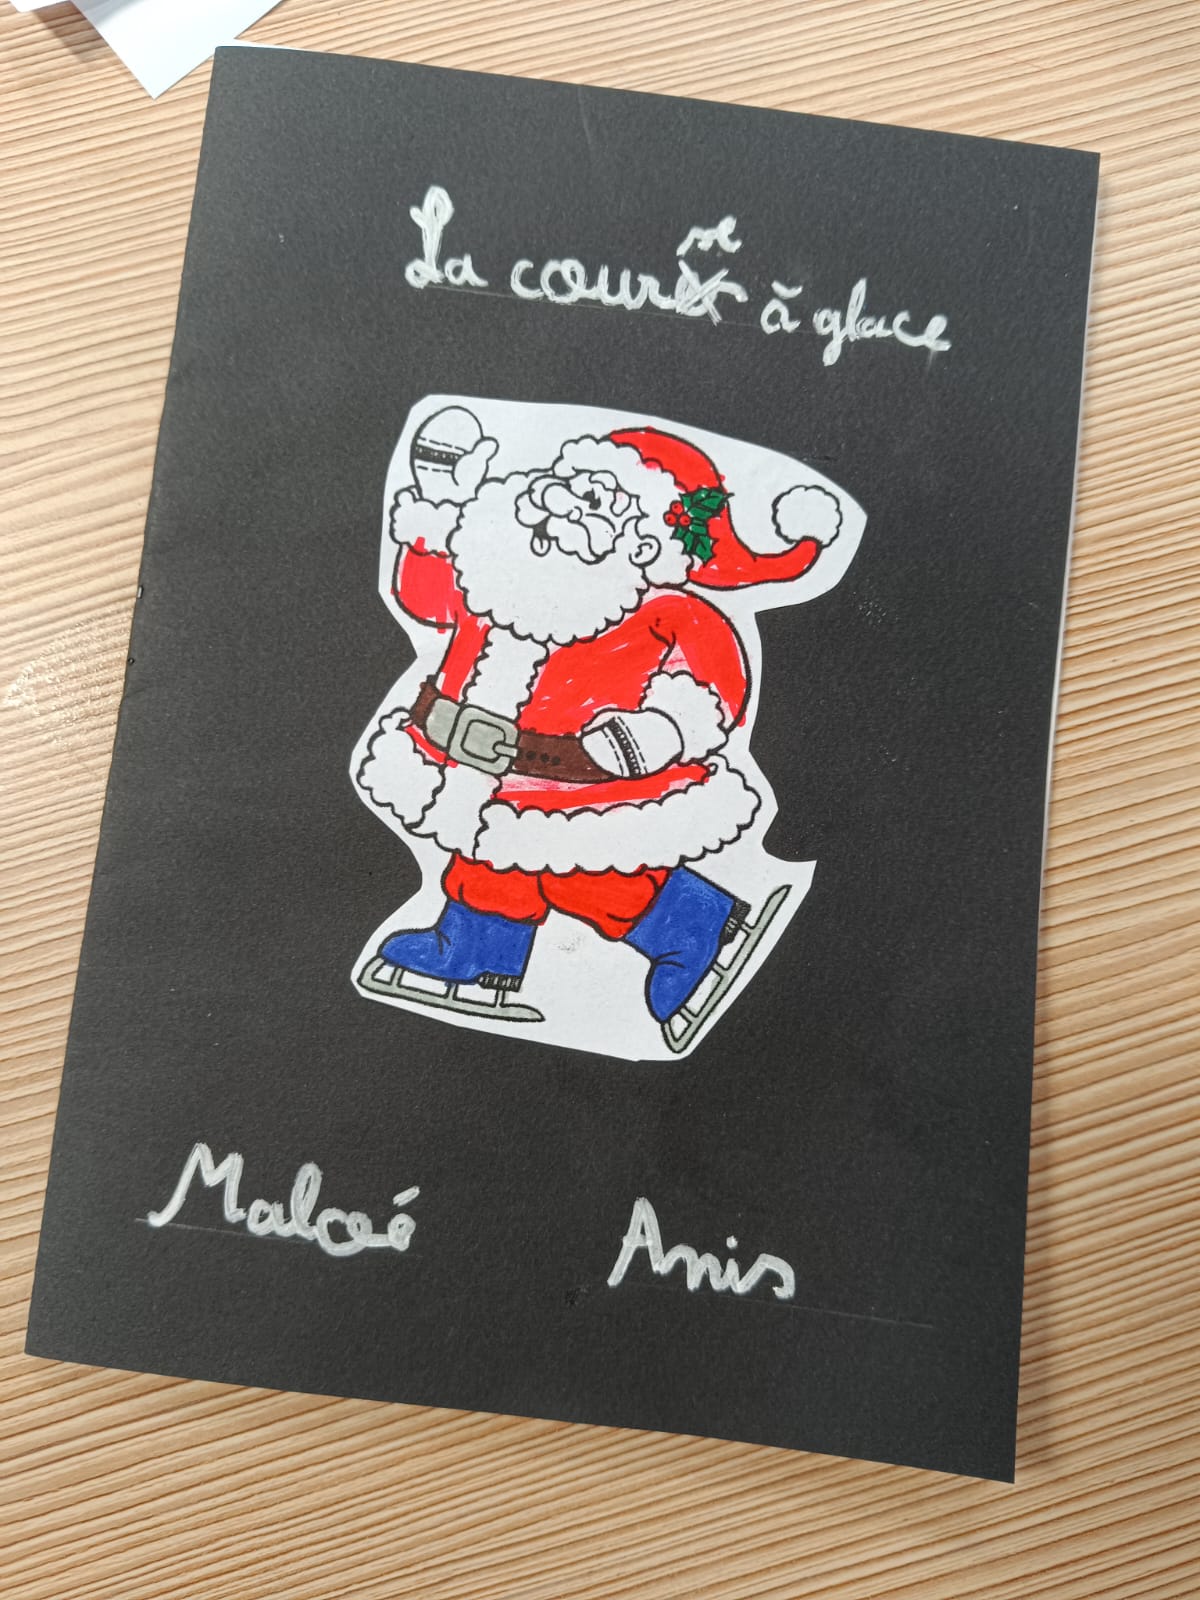 La course à glace
Maloé
Anis